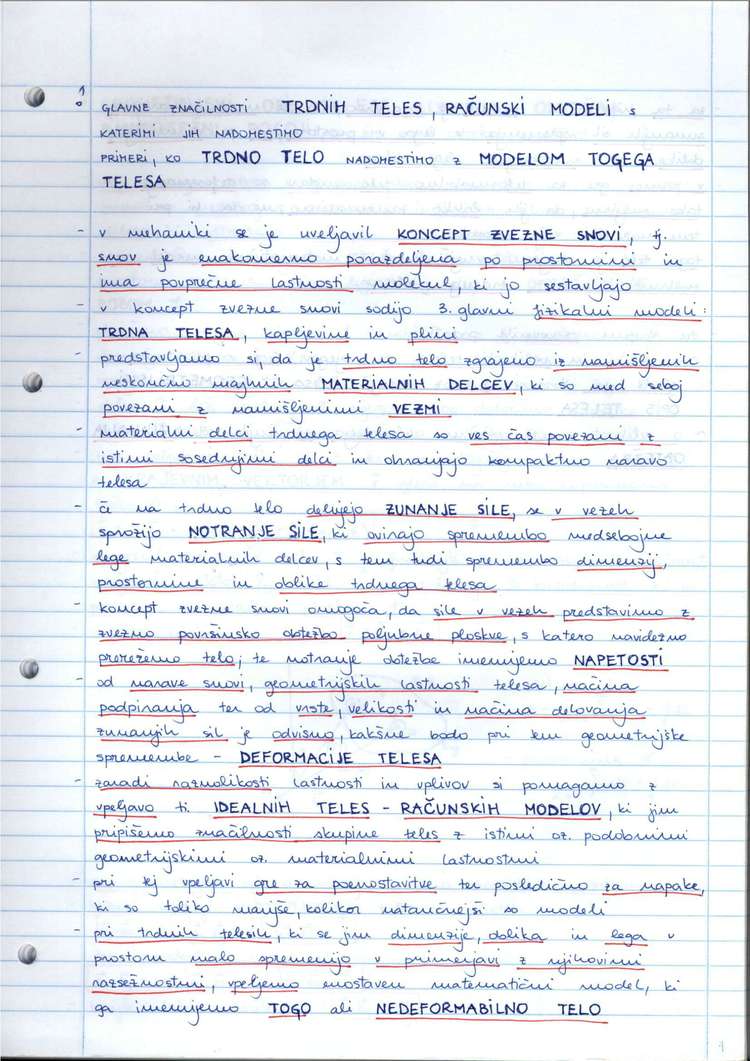 1.
GLAVNE ZNAČILNOSTI TRDNIH TELES, RAČUNSKI MODELI S
KATERIMI JIH NADOMESTIMO
PRIMERI, KO TRDNO TELO NADOMESTIMO Z MODELOM TOGEGA
TELESA
- v mehaniki se je uveljavil KONCEPT ZVEZNE SNOVI, tj.
snov je enakomerno porazdeljena po prostornini in
ima povprečne lastnosti molekul, ki jo sestavljajo
- v koncept zvezne snovi sodijo 3. glavni fizikalni modeli:
TRDNA TELESA, kapljevine in plini
- predstavljamo si, da je trdno telo zgrajeno iz namišljenih
neskončno majhnih MATERIALNIH DELCEV, ki so med seboj
povezani z namišljenimi VEZMI
- materialni delci trdnega telesa so ves čas povezani z
istimi sosednjimi delci in ohranjajo kompaktno naravo
telesa
- če na trdno telo delujejo ZUNANJE SILE, se v vezeh
sprožijo NOTRANJE SILE, ki ovirajo spremembo medsebojne
lege materialnih delcev, s tem tudi spremembo dimenzij,
prostornine in oblike trdnega telesa
- koncept zvezne snovi omogoča, da sile v vezeh predstavimo z
zvezno površinsko obtežbo poljubne ploskve, s katero navidezno
prerežemo telo; te notranje obtežbe imenujemo NAPETOSTI
- od narave snovi, geometrijskih lastnosti telesa, načina
podpiranja ter od vrste, velikosti in načina delovanja
zunanjih sil je odvisno, kakšne bodo pri tem geometrijske
spremembe - DEFORMACIJE TELESA
- zaradi raznolikosti lastnosti in vplivov si pomagamo z
vpeljavo ti. IDEALNIH TELES - RAČUNSKIH MODELOV, ki jim
pripišemo značilnosti skupine teles z istimi oz. podobnimi
geometrijskimi oz. materialnimi lastnostmi
- pri tej vpeljavi gre za poenostavitve ter posledično za napake,
ki so toliko manjše, kolikor natančnejši so modeli
- pri trdnih telesih, ki se jim dimenzije, oblika in lega v
prostoru malo spremenijo v primerjavi z njihovimi
razsežnostmi, vpeljemo enostaven matematični model, ki
ga imenujemo TOGO ali NEDEFORMABILNO TELO
1